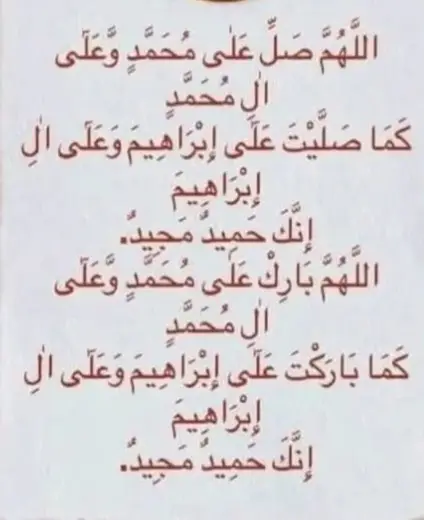 اللَّهُمَّ صَلِّ عَلٰى مُحَمَّدٍ وَّعَلٰٓى
اٰلِ مُحَمَّدٍ
كَمَا صَلَّيْتَ عَلٰٓى إِبْرَاهِيمَ وَعَلٰٓى اٰلِ
إِبْرَاهِيمَ
إِنَّكَ حَمِيدٌ مَجِيدٌ.
اللَّهُمَّ بَارِكْ عَلٰى مُحَمَّدٍ وَّعَلٰٓى
اٰلِ مُحَمَّدٍ
كَمَا بَارَكْتَ عَلٰٓى إِبْرَاهِيمَ وَعَلٰٓى اٰلِ
إِبْرَاهِيمَ
إِنَّكَ حَمِيدٌ مَجِيدٌ.